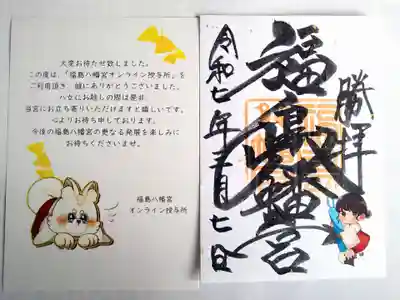 大変お待たせ致しました。
この度は、「福島八幡宮オンライン授与所」を
ご利用頂き、誠にありがとうございました。
八女にお越しの際は是非
当宮にお立ち寄りいただけますと嬉しいです。
心よりお待ち申しております。
今後の福島八幡宮の更なる発展を楽しみに
お待ちくださいませ。
福島八幡宮
オンライン授与所
勝拝
福島八幡宮